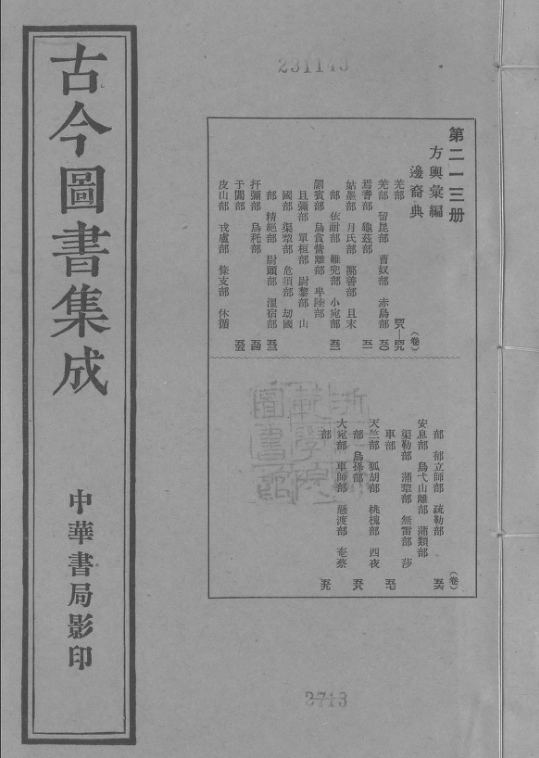 古今圖書集成
中華書局影印
231145
第二一三册
方輿彙編
邊裔典
（卷）
羌部
羌部 留昆部 曹奴部 赤烏部
焉耆部 龜茲部
姑墨部 月氏部 鄯善部 且末
部 依耐部 難兜部 小宛部
罽賓部 烏貪訾離部 卑陸部
且彌部 單桓部 尉黎部 山
國部 渠犂部 危須部 劫國
部 精絕部 尉頭部 溫宿部
扜彌部 烏秅部
于闐部
皮山部 戎盧部 條支部 休循
（卷）
部 郁立師部 疏勒部
安息部 烏弋山離部 蒲類部
渠勒部 蒲犂部 無雷部 莎
車部
天竺部 狐胡部 桃槐部 西夜
部 烏孫部
大宛部 車師部 懸渡部 奄蔡
部
2713